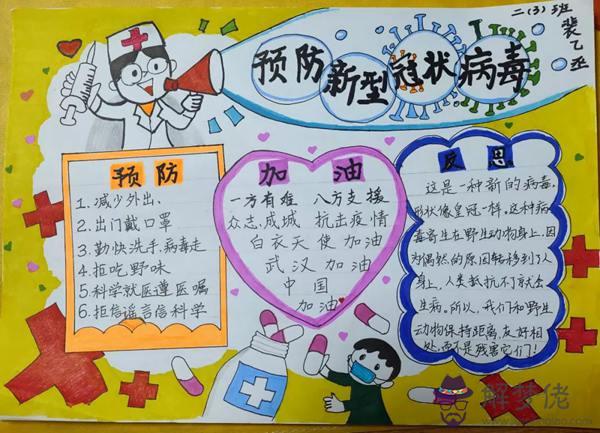 二(3)班
裴乙丞
预防新型冠状病毒
预防
1.减少外出、
2.出门戴口罩
3.勤快洗手病毒走
4.拒吃野味
5.科学就医遵医嘱
6.拒信谣言信科学
加油
一方有难 八方支援
众志成城 抗击疫情
白衣天使加油
武汉加油
中国
加油
反思
这是一种新的病毒.
形状像皇冠一样.这种病
毒寄生在野生动物身上,因
为偶然的原因转移到了人
身上,人类抵抗不了就会
生病。所以,我们和野生
动物保持距离,友好相
处,而不是残害它们!
解梦佬